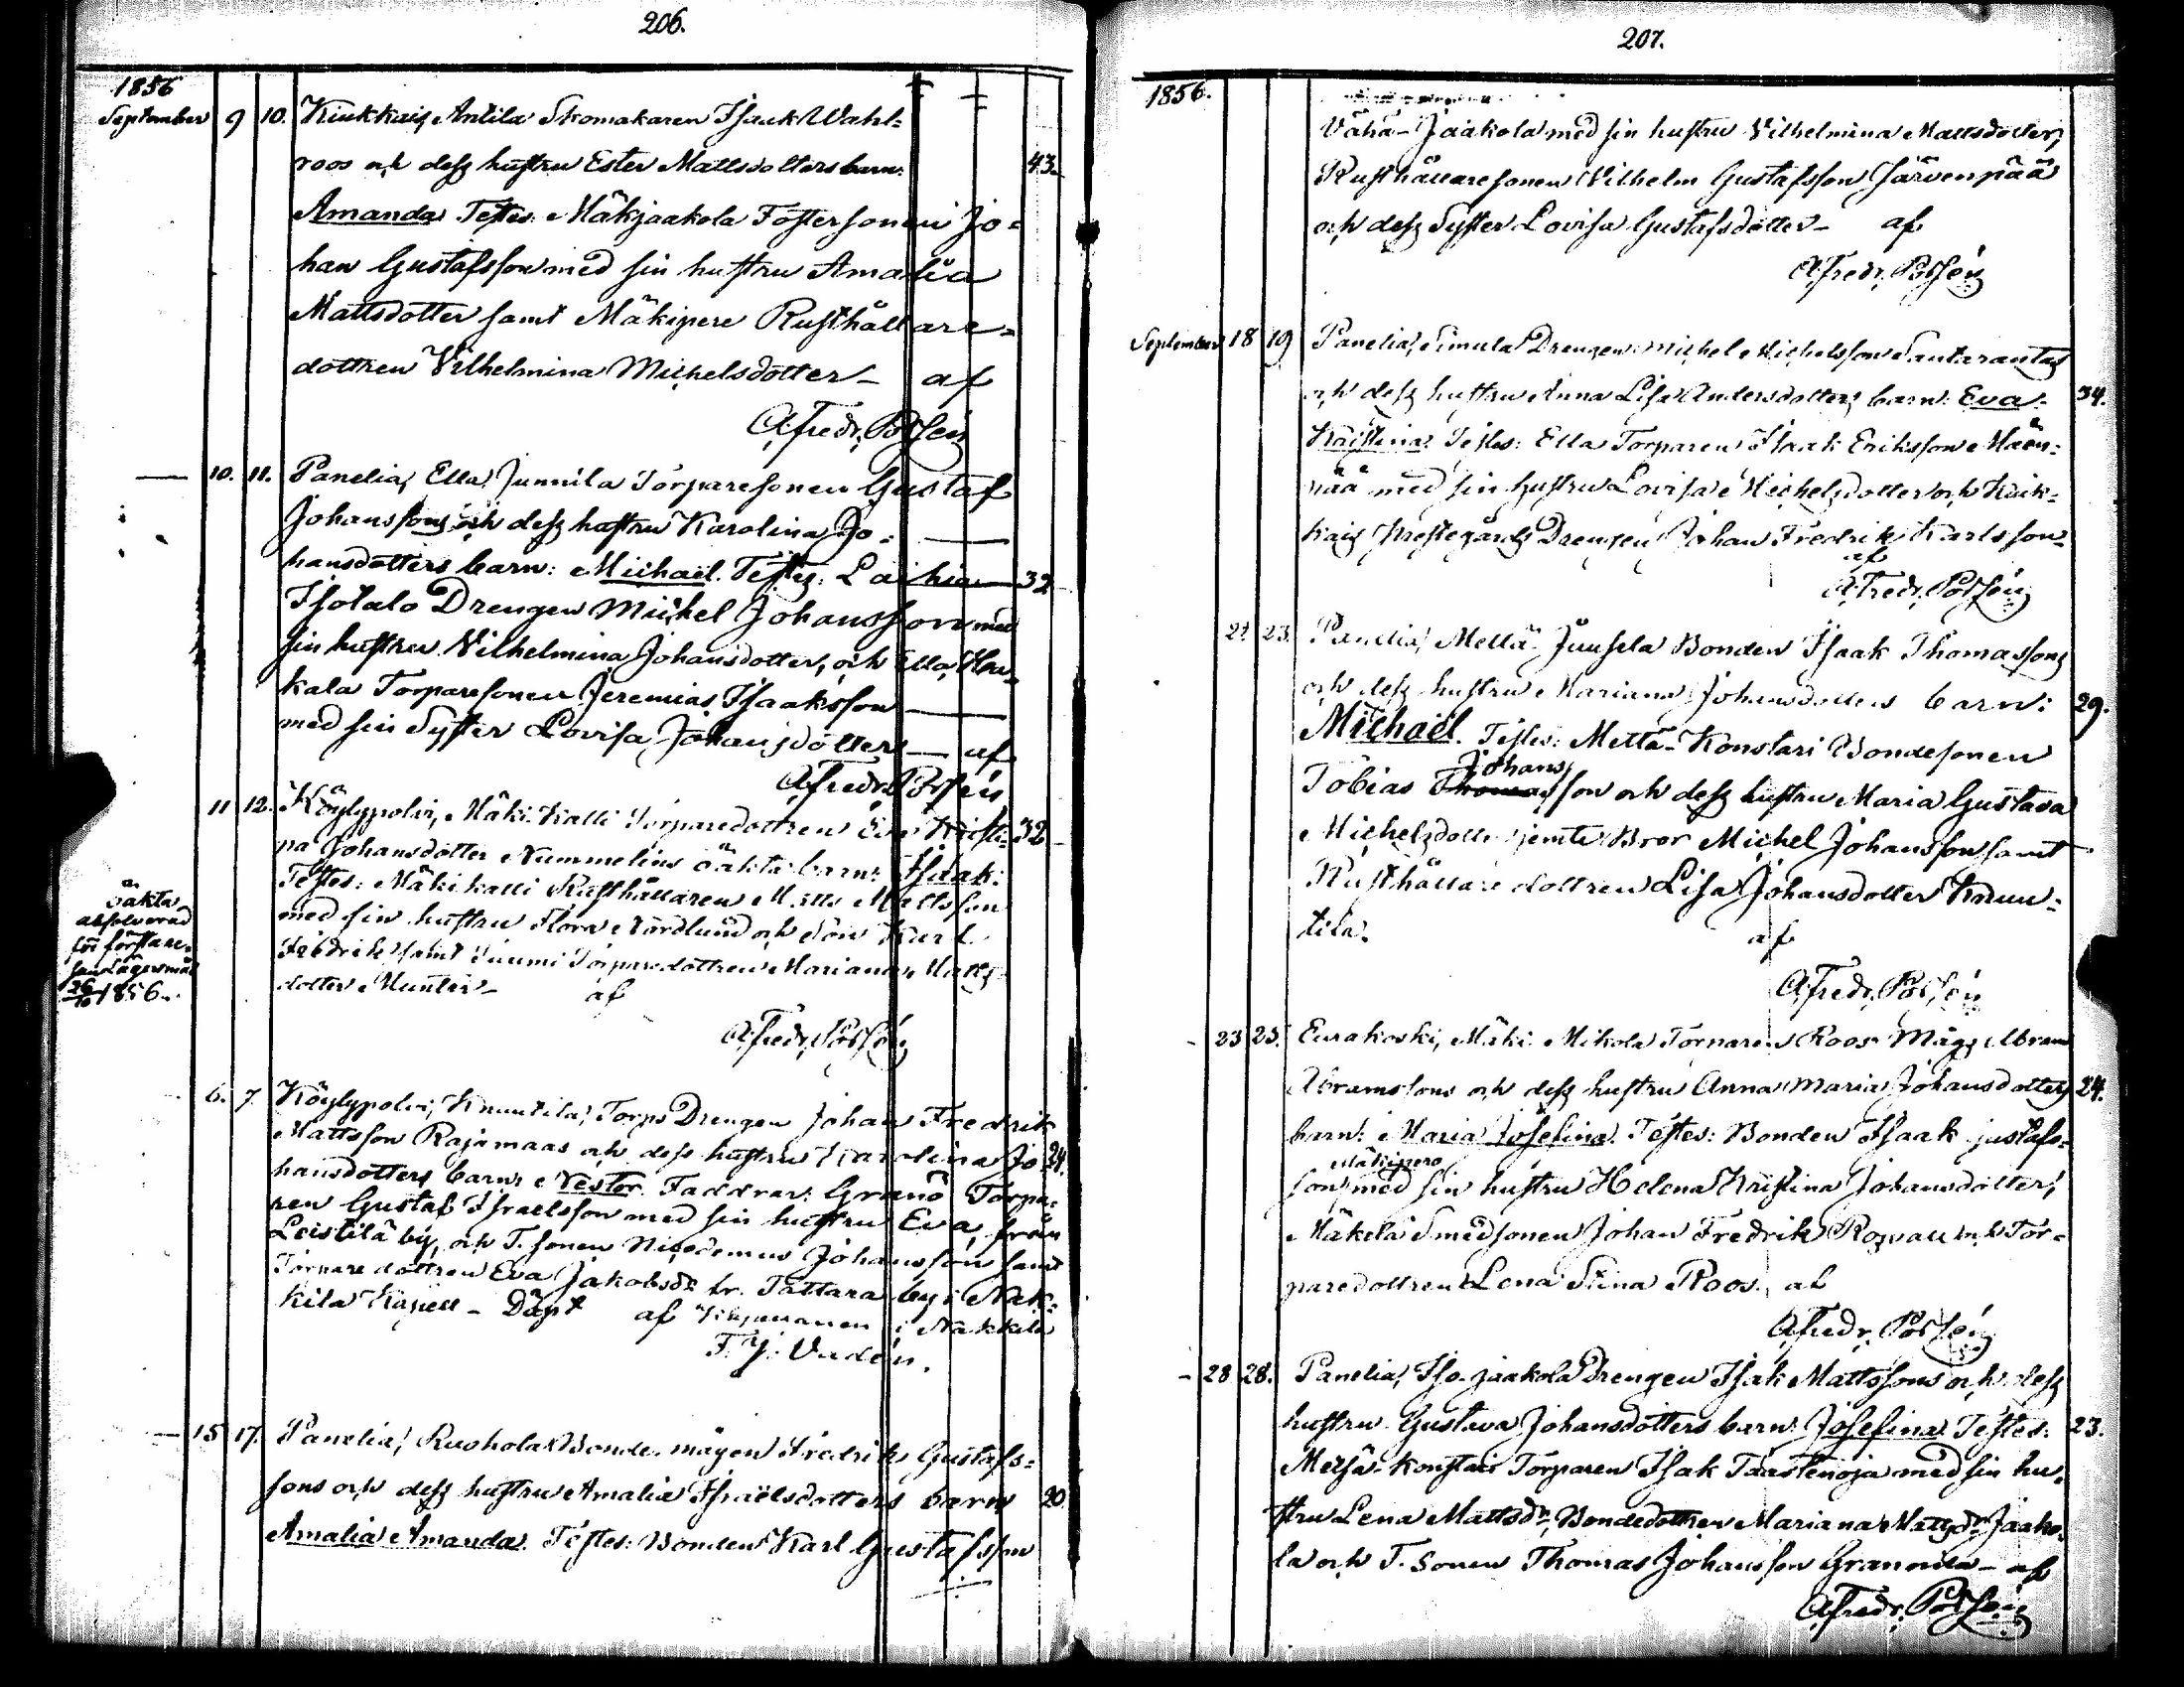 206.
1856
September 9 10. Kiukkais, Antila Skomakaren Isaak Wahl=
roos och dess hustru Ester Mattsdotters barn: 43.
Amanda Testes: Mäkjaakola Fostersonen Jo=
han Gustafsson med sin hustru Amalia
Mattsdotter samt Mäkipere Rusthållare=
dottren Vilhelmina Michelsdotter – af
A. Fredr. Polsén
— 10. 11. Panelia, Ella Junnila Torparesonen Gustaf
Johanssons och dess hustru Karolina Jo=
hansdotters barn: Michaël. Testes: Laihia 32
Isotalo Drengen Michel Johansson med
sin hustru Vilhelmina Johansdotter, och Ella,
kala Torparesonen Jeremias Isaaksson
med sin Syster Lovisa Johansdotter — af
A. Fredr. Polsén
11 12. Köylypolvi, Mäki-Kalli Torparedottren Eva Kristi= 32
na Johansdotter Nummelins oäkta barn: Isaak:
Testes: Mäkikalli Rusthållaren Matts Mattsson
med sin hustru Flora Nordlund och Son Karl
Fredrik samt Torparedottren Mariana Matts=
dotter – af
A. Fredr. Polsén
oäkta
absolverad
för första re-
san Lägersmål
26/10 1856.
6. 7 Köylypolvi, Knuutila, Torps Drengen Johan Fredrik
Mattsson Rajamaas och dess hustru Karolina Jo= 24.
hansdotters barn: Nestor. Faddrar: Granö Torpa=
ren Gustaf Israelsson med sin hustru Eva, från
Leistilä by, och T. sonen Nicodemus Johansson samt
Torpare dottren Eva Jakobsdr fr. Tattara by i Nak=
kila Kapell – Döpt af Kapellanen i Nakkila
F. J. Vadén.
— 15 17. Panelia, Ruohola Bonde mågen Fredrik Gustafs=
sons och dess hustru Amalia Israëlsdotters barn 20
Amalia Amanda. Testes: Bonden Karl Gustafsson
207.
1856.
Vähä-Jaakola med sin hustru Vilhelmina Mattsdotter,
Rusthållaresonen Vilhelm Gustafsson Järvenpää
och dess Syster Lovisa Gustafsdotter – af
A. Fredr. Polsén
September 18 19 Panelia, Simula Drengen Michel Michelsson Santarantas
och dess hustru Anna Lisa Andersdotters barn: Eva= 34.
Kristina. Testes: Ella Torparen Isaak Eriksson Mäen=
pää med sin hustru Lovisa Michelsdotter och Kiuk=
kais Prestegårds Drengen Johan Fredrik Karlsson –
af
A. Fredr. Polsén
21 23. Panelia, Mellä-Juusela Bonden Isaak Thomassons
och dess hustru Mariana Johansdotters barn: 29.
Michaël. Testes: Mettä-Konstari Bondesonen
Johans
Tobias Thomasson och dess hustru Maria Gustava
Michelsdotter jemte Bror Michel Johansson samt
Rusthållare dottren Lisa Johansdotter Knuu=
tila. af
A. Fredr. Polsén
- 23 25. Eurakoski, Mäki-Mikola Torparen Roos Mågs Abram
Abramssons och dess hustru Anna Maria Johansdotters 24.
barn: Maria Josefina. Testes: Bonden Isaak Gustafs=
Mäkipere
son med sin hustru Helena Kristina Johansdotter,
Mäkelä Smedsonen Johan Fredrik Rosvall och Tor=
paredottren Lena Stina Roos. af
A. Fredr. Polsén
- 28 28. Panelia, Iso-jaakola Drengen Isak Mattssons och dess
hustru Gustava Johansdotters barn: Josefina. Testes: 23.
Metsä-konstari Torparen Isak Taastenoja med sin hu=
stru Lena Mattsdr, Bondedottren Mariana Mattsdr Jaako=
la och T. Sonen Thomas Johansson Grannila – af
A. Fredr. Polsén